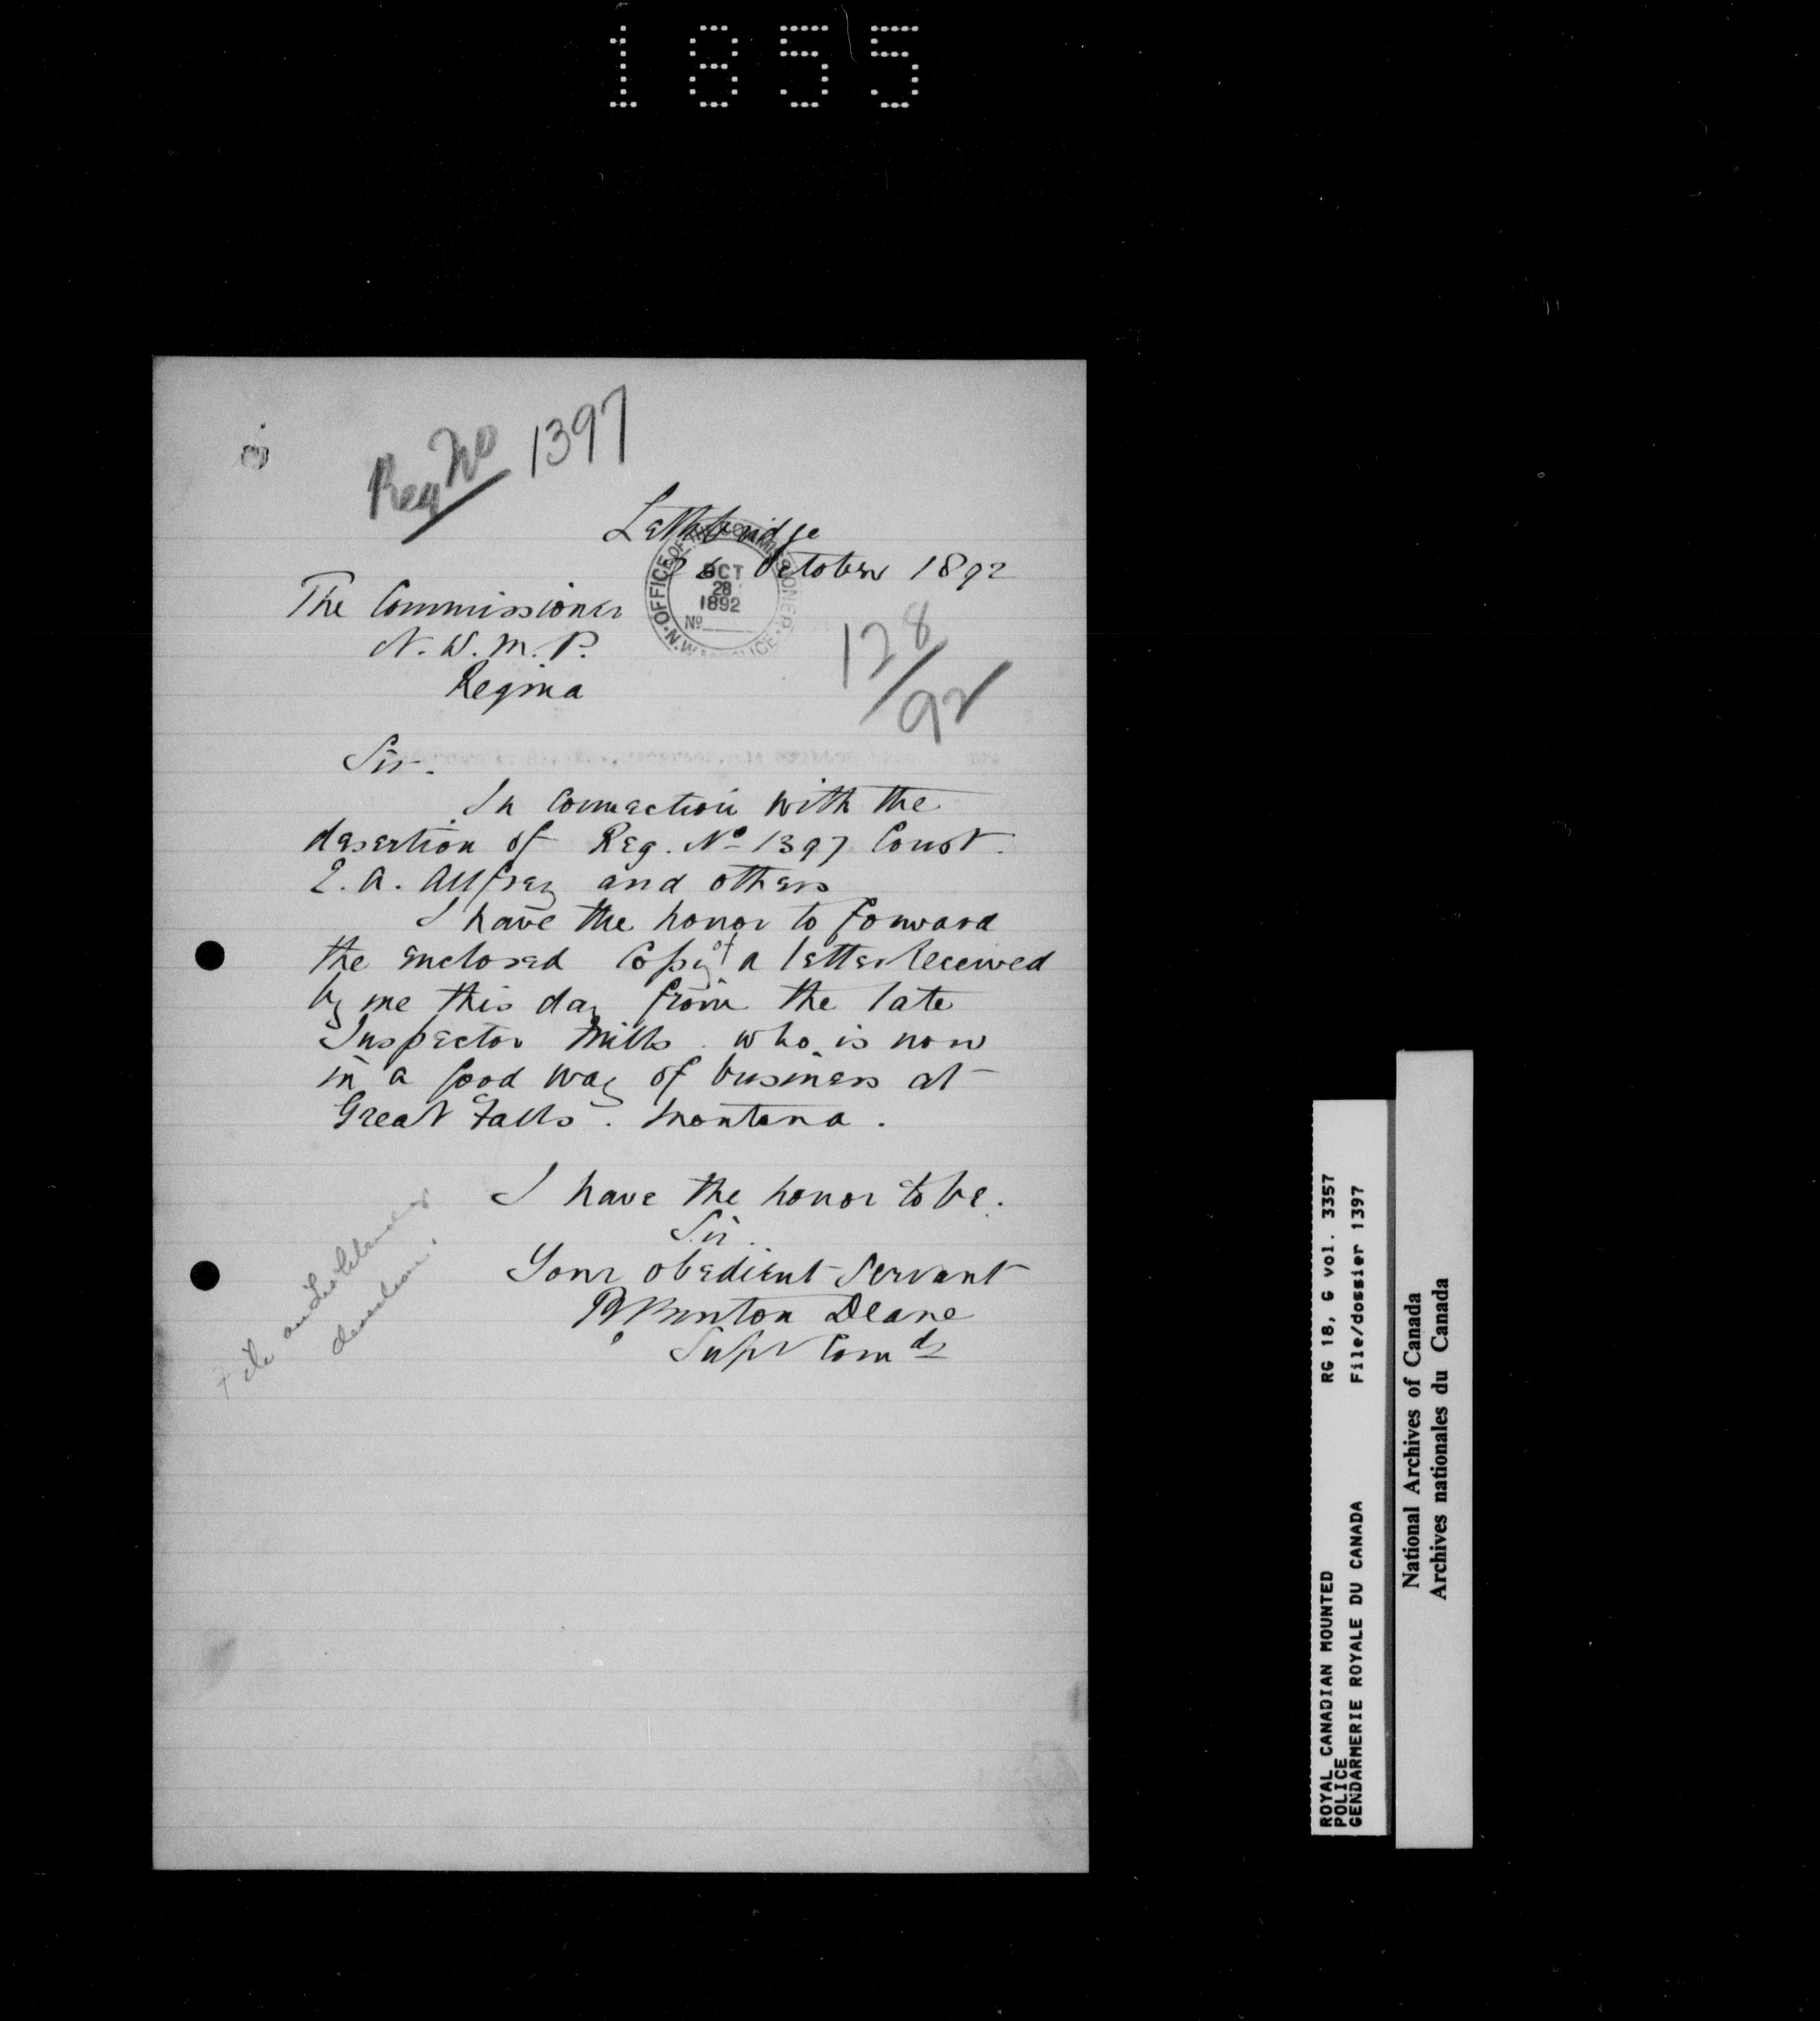 1855
Reg No 1397
Lethbridge
26 October 1892
OFFICE OF THE COMMISSIONER
OCT
28
1892
No
N.W.M. POLICE
The Commissioner
N. W. M. P.
Regina
128/92
Sir.
In Connection with the
desertion of Reg. No 1397 Const.
E. A. Allfrey and others
I have the honor to forward
the enclosed Copy of a letter received
by me this day from the late
Inspector Mills. who is now
in a good way of business at
Great Falls. Montana.
I have the honor to be.
Sir.
Your obedient Servant
R Burton Deane
Supt Comdg
File
desertion.
ROYAL CANADIAN MOUNTED
POLICE
GENDARMERIE ROYALE DU CANADA
RG 18, G vol. 3357
File/dossier 1397
National Archives of Canada
Archives nationales du Canada